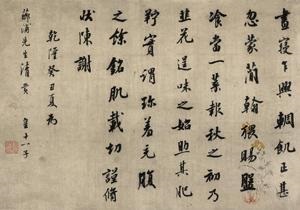 晝寢乍興輖飢正甚
忽蒙簡翰猥賜盤
飡當一葉報秋之初乃
韭花逞味之始助其肥
羜實謂珍羞充腹
之餘銘肌載切謹脩
狀陳謝
乾隆癸丑夏為
浦先生清賞 皇十一子